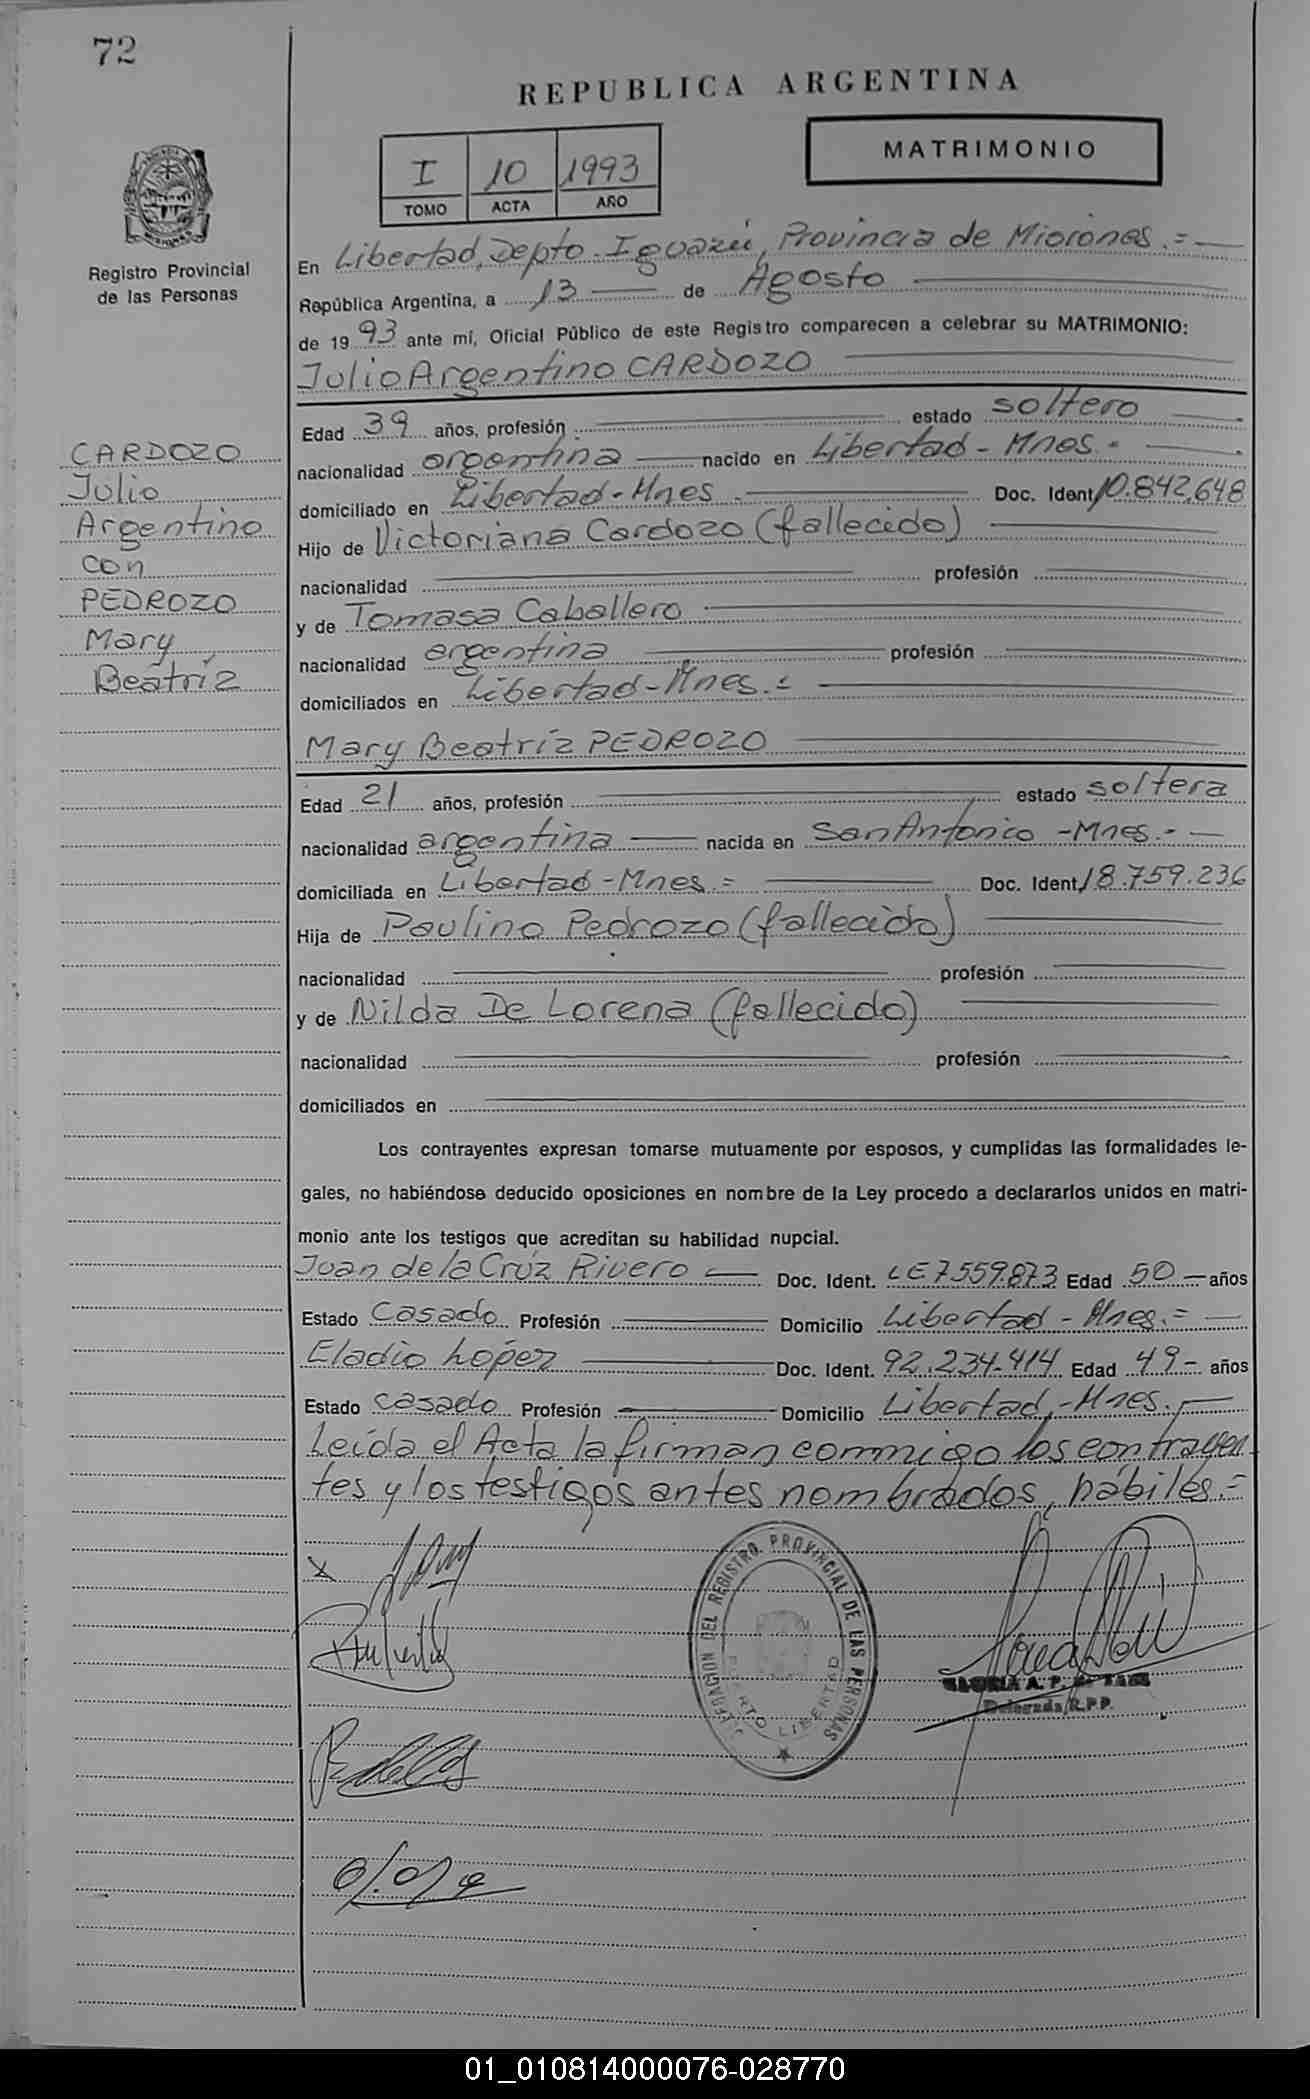 72
REPUBLICA ARGENTINA
MATRIMONIO
I 10 1993
TOMO ACTA AÑO
Registro Provincial
de las Personas
En Libertad, Depto. Iguazú, Provincia de Misiones.=
República Argentina, a 13 de Agosto
de 1993 ante mí, Oficial Público de este Registro comparecen a celebrar su MATRIMONIO:
Julio Argentino CARDOZO
Edad 39 años, profesión estado soltero
nacionalidad argentina nacido en Libertad - Mnes.-
domiciliado en Libertad-Mnes. Doc. Ident. 10.842.648
Hijo de Victoriana Cardozo (fallecido)
nacionalidad profesión
y de Tomasa Caballero
nacionalidad argentina profesión
domiciliados en Libertad-Mnes.=
CARDOZO
Julio
Argentino
con
PEDROZO
Mary
Beatríz
Mary Beatríz PEDROZO
Edad 21 años, profesión estado soltera
nacionalidad argentina nacida en San Antonio -Mnes.-
domiciliada en Libertad-Mnes.= Doc. Ident. 18.759.236
Hija de Paulino Pedrozo (fallecido)
nacionalidad profesión
y de Nilda De Lorena (fallecido)
nacionalidad profesión
domiciliados en
Los contrayentes expresan tomarse mutuamente por esposos, y cumplidas las formalidades le-
gales, no habiéndose deducido oposiciones en nombre de la Ley procedo a declararlos unidos en matri-
monio ante los testigos que acreditan su habilidad nupcial.
Juan de la Crúz Rivero Doc. Ident. LE 7.559.873 Edad 50 años
Estado Casado Profesión Domicilio Libertad - Mnes.=
Eladio Lopéz Doc. Ident. 92.234.414 Edad 49 años
Estado casado Profesión Domicilio Libertad,-Mnes.
Leída el Acta la firman conmigo los contrayen-
tes y los testigos antes nombrados, hábiles.=
X
DEL REGISTRO PROVINCIAL DE LAS PERSONAS
PUERTO LIBERTAD
GLORIA A. P.
Delegada R.P.P.
01_010814000076-028770